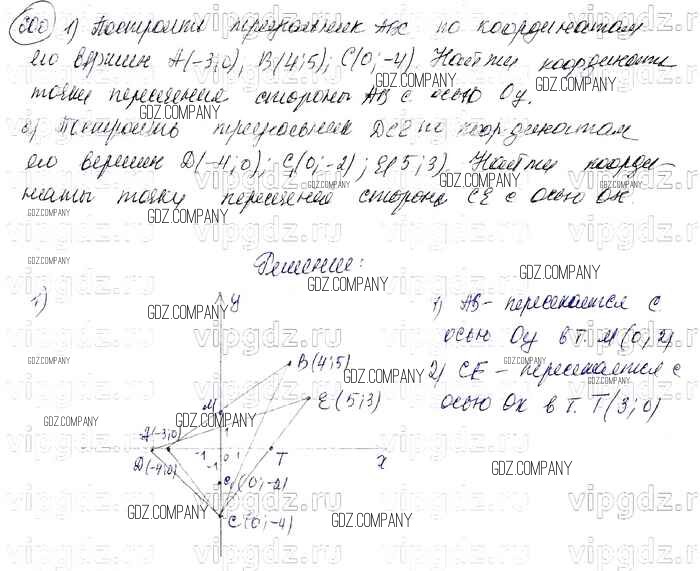 500 1) Построить треугольник ABC по координатам
его вершин A(-3;0), B(4;5), C(0;-4). Найти координаты
точки пересечения стороны AB с осью Oy.
2) Построить треугольник DCE по координатам
его вершин D(-4;0); C(0;-2); E(5;3). Найти коорди-
наты точки пересечения стороны CE с осью OX.
Решение:
1)
y
B(4;5)
E(5;3)
M
A(-3;0)
D(-4;0)
-1
0
1
-1
T
x
C(0;-2)
C(0;-4)
1) AB- пересекается с
осью Oy в т. M(0;2)
2) CE - пересекается с
осью OX в т. T(3;0)
GDZ.COMPANY
vipgdz.ru